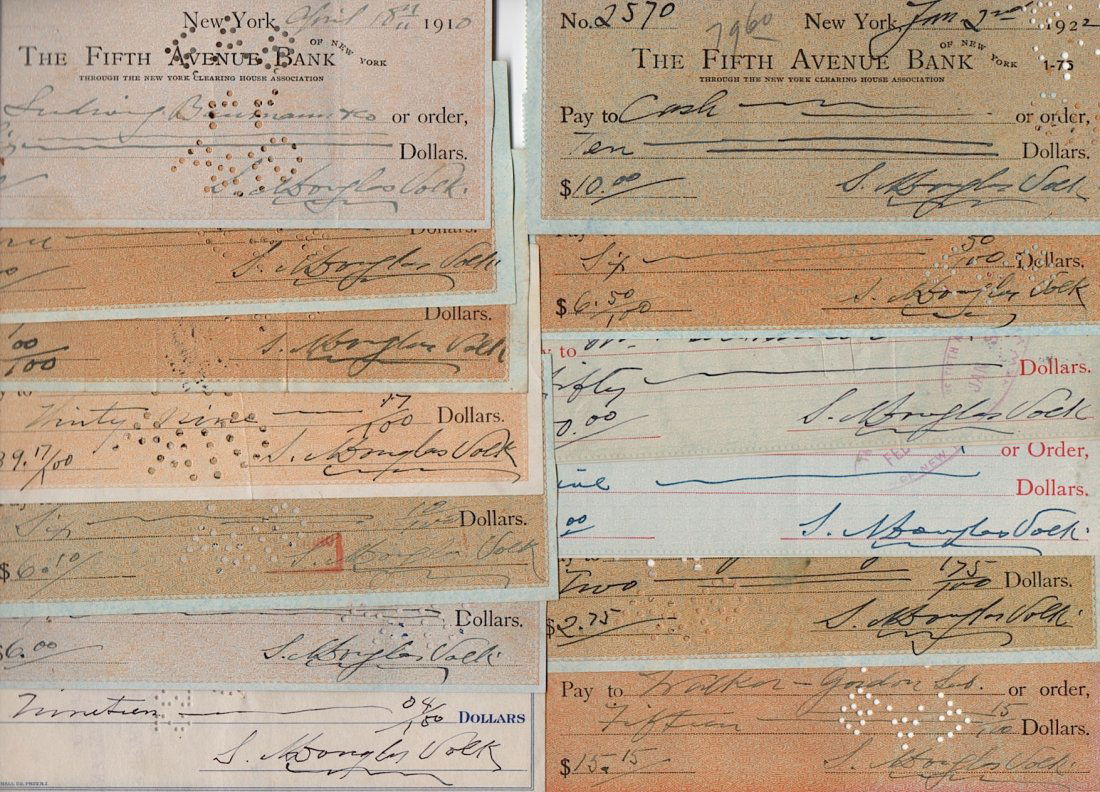 New York April 18th 1910
THE FIFTH AVENUE BANK OF NEW YORK
THROUGH THE NEW YORK CLEARING HOUSE ASSOCIATION
Ludwig Baumann & Co or order,
Dollars.
S. A. Douglas Volk.
S. A. Douglas Volk
Dollars.
00/100
S. A. Douglas Volk
to
Thirty Nine 17/100 Dollars.
39.17/100
S. A. Douglas Volk
Six 10/100 Dollars.
$6.10/
S. A. Douglas Volk
Dollars.
$6.00
S. A. Douglas Volk.
Nineteen 04/100 DOLLARS
S. A. Douglas Volk
No. 2570
7960
New York, Jan 2nd 1922
THE FIFTH AVENUE BANK OF NEW YORK 1-75
THROUGH THE NEW YORK CLEARING HOUSE ASSOCIATION
Pay to Cash or order,
Ten Dollars.
$10.00 S. A. Douglas Volk
Six 50/100 Dollars.
$6.50/100 S. A. Douglas Volk
y to
Fifty Dollars.
0.00 S. A. Douglas Volk
JAN
FEB
OF NEW
or Order,
Dollars.
00 S. A. Douglas Volk.
Two 175/100 Dollars.
$2.75 S. A. Douglas Volk.
Pay to Walker-Gordon Lab. or order,
Fifteen 15/100 Dollars.
$15.15 S. A. Douglas Volk